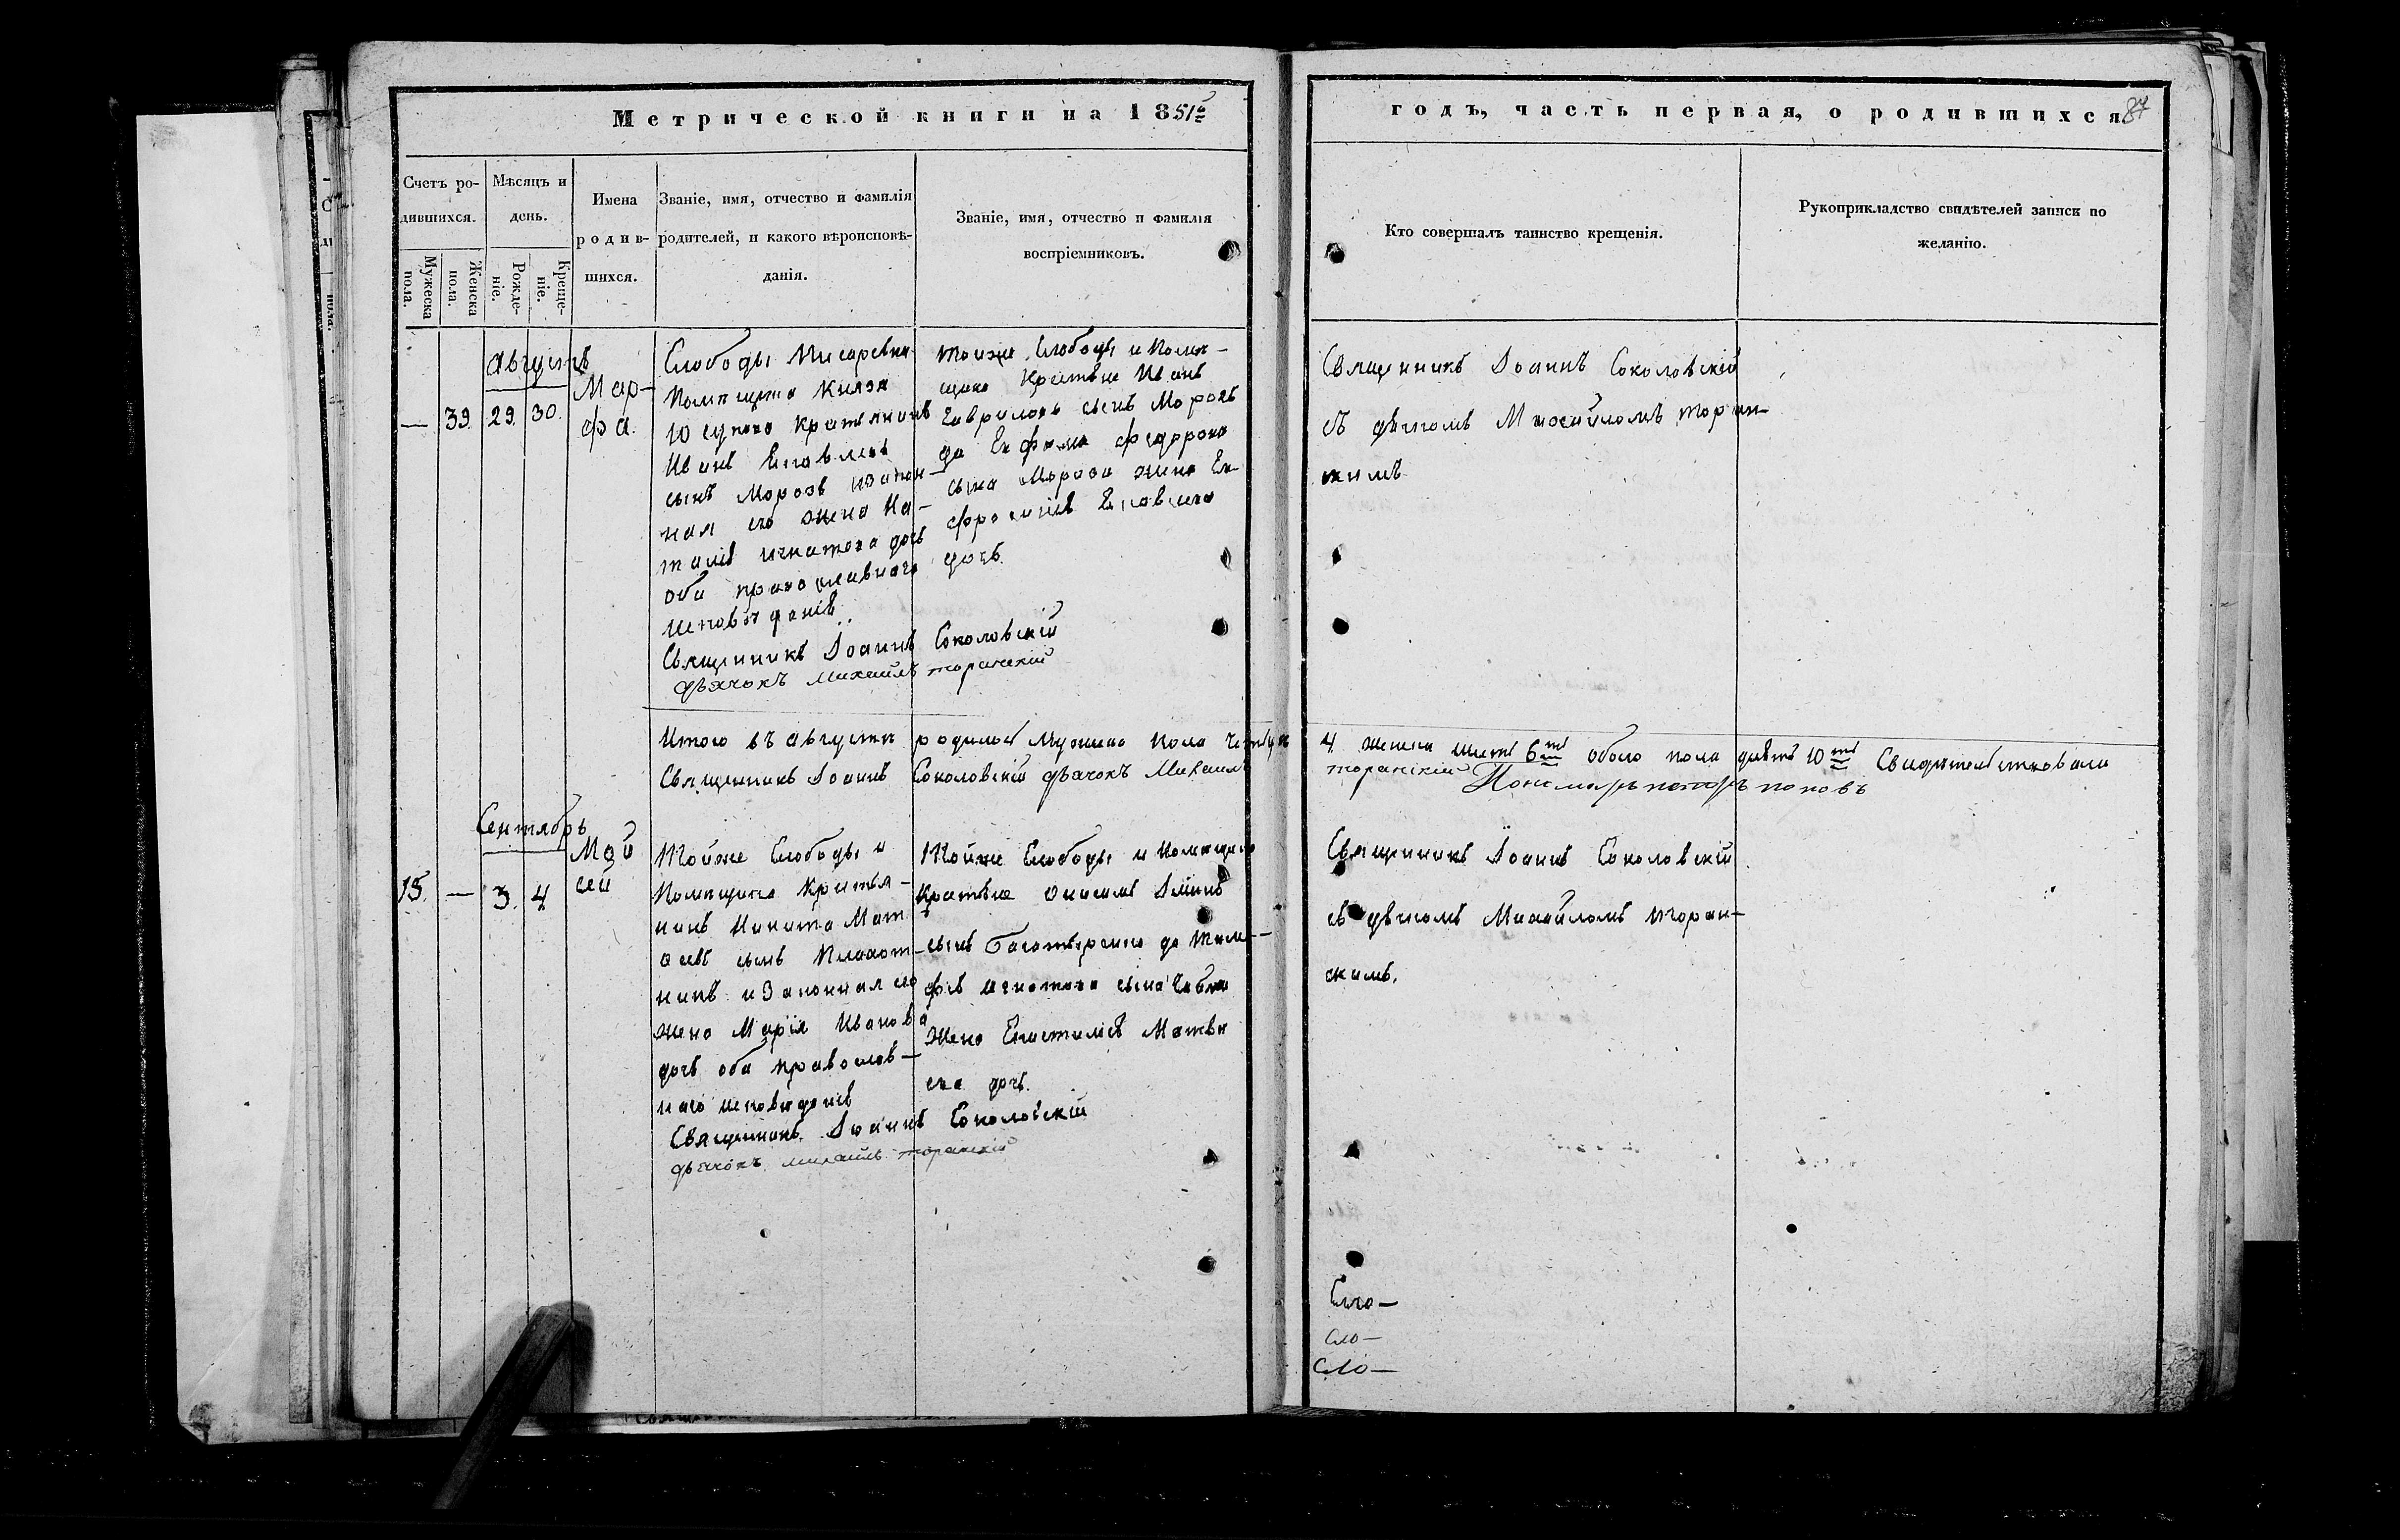 Метрической книги на 1851й
годъ, часть первая, о родившихся
87
Счетъ ро-
дившихся.
Мужеска
пола.
Женска
пола.
Мѣсяцъ и
день.
Рожде-
ніе.
Креще-
ніе.
Имена
родив-
шихся.
Званіе, имя, отчество и фамилія
родителей, и какого вѣроисповѣ-
данія.
Званіе, имя, отчество и фамилія
воспріемниковъ.
Кто совершалъ таинство крещенія.
Рукоприкладство свидѣтелей записи по
желанію.
Августъ
— 39. 29. 30.
Мар-
фа.
Слободы Писаревка
Помѣщика Князя
Юсупова Крестьянинъ
Иванъ
сынъ Морозъ изакон-
ная его жена На-
талія Игнатова дочь
оба православнаго
исповѣданія
Священникъ Іоаннъ Соколовскій
дьячокъ Михаилъ торанскій
тойже Слободы и Помѣ-
щика Крестьяне Иванъ
Гавриловъ сынъ Морозъ
да Федорова
сына Мороза жена Ев-
фросинія
дочь.
Священникъ Іоаннъ Соколовскій
съ дьячкомъ Михаиломъ торан-
скимъ
Итого въ августѣ родилось Мужеска пола четыре
4 женска шесть 6ть обоего пола десять 10ть Свидетельствовали
Священникъ Іоаннъ Соколовскій дьячокъ Михаилъ
торанскій Пономарь петръ поповъ
Сентябрь
15. — 3. 4
Мои
сей
Тойже Слободы и
Помѣщика Крестья-
нинъ Никита Мат
сынъ
нинъ изаконная его
жена Марія Иванова
дочь оба православ-
наго исповеданія
Священникъ Іоаннъ Соколовскій
дьячокъ михаилъ торанскій
Тойже Слободы и помѣщика
Крестьяне
сынъ да Тимо-
фея Игнатова сына
жена Матвѣ
ева дочь.
Священникъ Іоаннъ Соколовскій
съ дьячкомъ Михаиломъ торан-
скимъ.
Сло-
Сло-
Сло-